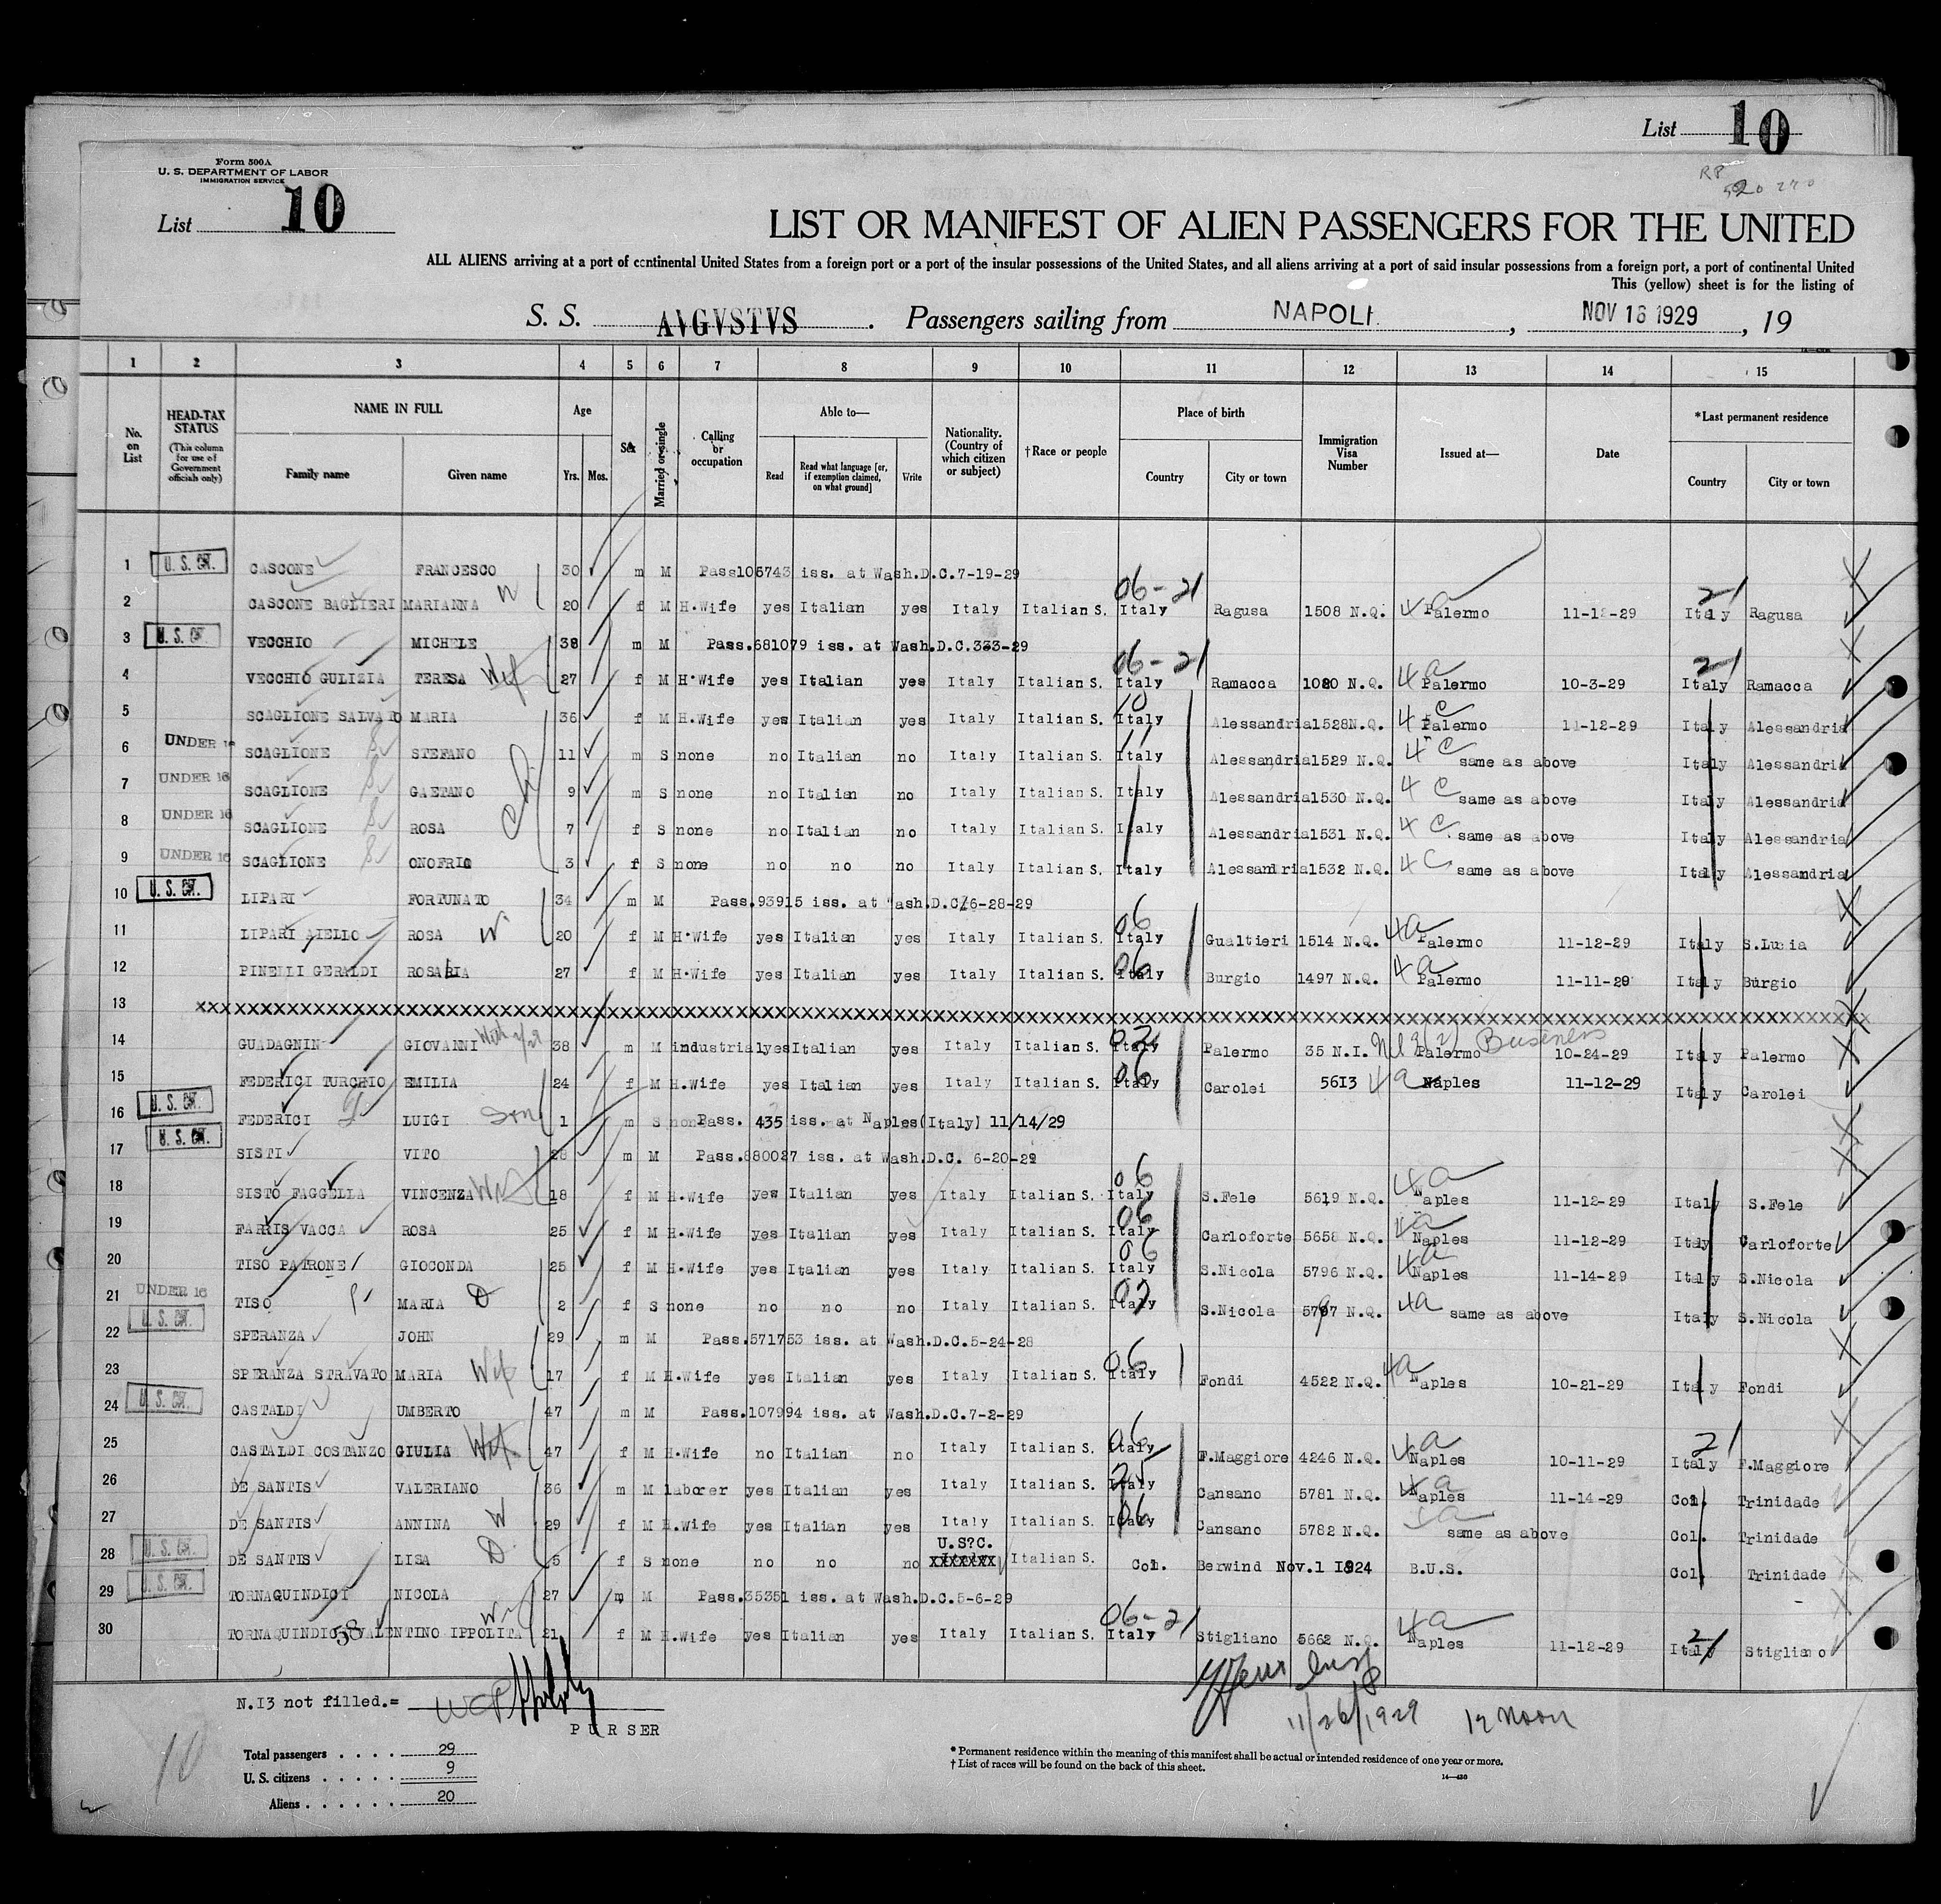 List 10
Form 500A
U. S. DEPARTMENT OF LABOR
IMMIGRATION SERVICE
List 10
LIST OR MANIFEST OF ALIEN PASSENGERS FOR THE UNITED
ALL ALIENS arriving at a port of continental United States from a foreign port or a port of the insular possessions of the United States, and all aliens arriving at a port of said insular possessions from a foreign port, a port of continental United
This (yellow) sheet is for the listing of
S. S. AVGVSTVS. Passengers sailing from NAPOLI, NOV 16 1929, 19
1 2 3 4 5 6 7 8 9 10 11 12 13 14 15
No. on List
HEAD-TAX STATUS (This column for use of Government officials only)
NAME IN FULL Family name Given name
Age Yrs. Mos.
Sex
Married or single
Calling or occupation
Able to— Read Read what language [or, if exemption claimed, on what ground] Write
Nationality. (Country of which citizen or subject)
†Race or people
Place of birth Country City or town
Immigration Visa Number
Issued at—
Date
*Last permanent residence Country City or town
1 U. S. CIT. CASCONE FRANCESCO 30 m M Pass105743 iss. at Wash.D.C.7-19-29
2 CASCONE BAGLIERI MARIANNA W 20 f M H.Wife yes Italian yes Italy Italian S. 06-21 Italy Ragusa 1508 N.Q. 4a Palermo 11-12-29 21 Italy Ragusa
3 U. S. CIT. VECCHIO MICHELE 38 m M Pass.681079 iss. at Wash.D.C.333-29
4 VECCHIO GULIZIA TERESA Wf 27 f M H.Wife yes Italian yes Italy Italian S. 06-21 Italy Ramacca 1020 N.Q. 4a Palermo 10-3-29 21 Italy Ramacca
5 SCAGLIONE SALVATO MARIA 36 f M H.Wife yes Italian yes Italy Italian S. Italy Alessandria 1528N.Q. 4c Palermo 11-12-29 Italy Alessandria
6 UNDER 16 SCAGLIONE STEFANO 11 m S none no Italian no Italy Italian S. Italy Alessandria 1529 N.Q. 4c same as above Italy Alessandria
7 UNDER 16 SCAGLIONE GAETANO 9 m S none no Italian no Italy Italian S. Italy Alessandria 1530 N.Q. 4c same as above Italy Alessandria
8 UNDER 16 SCAGLIONE ROSA Ch 7 f S none no Italian no Italy Italian S. Italy Alessandria 1531 N.Q. 4c same as above Italy Alessandria
9 UNDER 16 SCAGLIONE ONOFRIO 3 f S none no no no Italy Italian S. Italy Alessandria 1532 N.Q. 4c same as above Italy Alessandria
10 U. S. CIT. LIPARI FORTUNATO 34 m M Pass.93915 iss. at Wash.D.C/6-28-29
11 LIPARI AIELLO ROSA W 20 f M H.Wife yes Italian yes Italy Italian S. 06 Italy Gualtieri 1514 N.Q. 4a Palermo 11-12-29 Italy S.Lucia
12 PINELLI GERALDI ROSARIA 27 f M H.Wife yes Italian yes Italy Italian S. 06 Italy Burgio 1497 N.Q. 4a Palermo 11-11-29 Italy Burgio
13 xxxxxxxxxxxxxxxxxxxxxxxxxxxxxxxxxxxxxxxxxxxxxxxx
14 GUADAGNIN GIOVANNI 38 m M industrial yes Italian yes Italy Italian S. 03 Italy Palermo 35 N.I. Palermo Business 10-24-29 Italy Palermo
15 FEDERICI TURCHIO EMILIA 24 f M H.Wife yes Italian yes Italy Italian S. 06 Italy Carolei 5613 4a Naples 11-12-29 Italy Carolei
16 U. S. CIT. FEDERICI LUIGI Son 1 m S non Pass. 435 iss. at Naples(Italy) 11/14/29
17 U. S. CIT. SISTI VITO 28 m M Pass.880027 iss. at Wash.D.C. 6-20-29
18 SISTO FAGGELLA VINCENZA Wf 18 f M H.Wife yes Italian yes Italy Italian S. 06 Italy S.Fele 5619 N.Q. 4a Naples 11-12-29 Italy S.Fele
19 FARRIS VACCA ROSA 25 f M H.Wife yes Italian yes Italy Italian S. 06 Italy Carloforte 5658 N.Q. 4a Naples 11-12-29 Italy Carloforte
20 TISO PATRONE GIOCONDA 25 f M H.Wife yes Italian yes Italy Italian S. 06 Italy S.Nicola 5796 N.Q. 4a Naples 11-14-29 Italy S.Nicola
21 UNDER 16 TISO MARIA D 2 f S none no no no Italy Italian S. Italy S.Nicola 5797 N.Q. 4a same as above Italy S.Nicola
22 U. S. CIT. SPERANZA JOHN 29 m M Pass.571753 iss. at Wash.D.C.5-24-28
23 SPERANZA STRAVATO MARIA Wf 17 f M H.Wife yes Italian yes Italy Italian S. 06 Italy Fondi 4522 N.Q. 4a Naples 10-21-29 Italy Fondi
24 U. S. CIT. CASTALDI UMBERTO 47 m M Pass.107994 iss. at Wash.D.C.7-2-29
25 CASTALDI COSTANZO GIULIA Wf 47 f M H.Wife no Italian no Italy Italian S. 06 Italy F.Maggiore 4246 N.Q. 4a Naples 10-11-29 21 Italy F.Maggiore
26 DE SANTIS VALERIANO 36 m M laborer yes Italian yes Italy Italian S. Italy Cansano 5781 N.Q. 4a Naples 11-14-29 Col. Trinidade
27 DE SANTIS ANNINA W 29 f M H.Wife yes Italian yes Italy Italian S. 06 Italy Cansano 5782 N.Q. same as above Col. Trinidade
28 U. S. CIT. DE SANTIS LISA D. 5 f S none no no no U.S?C. XXXXXXX Italian S. Col. Berwind Nov.1 1924 B.U.S. Col. Trinidade
29 U. S. CIT. TORNAQUINDICI NICOLA 27 m M Pass.35351 iss. at Wash.D.C.5-6-29
30 TORNAQUINDICI VALENTINO IPPOLITA Wf 21 f M H.Wife yes Italian yes Italy Italian S. 06-21 Italy Stigliano 5662 N.Q. 4a Naples 11-12-29 21 Italy Stigliano
58
N.I3 not filled.=
PURSER
11/26/1929 12 noon
10
Total passengers . . . . 29
U. S. citizens . . . . . 9
Aliens . . . . . . 20
* Permanent residence within the meaning of this manifest shall be actual or intended residence of one year or more.
† List of races will be found on the back of this sheet.